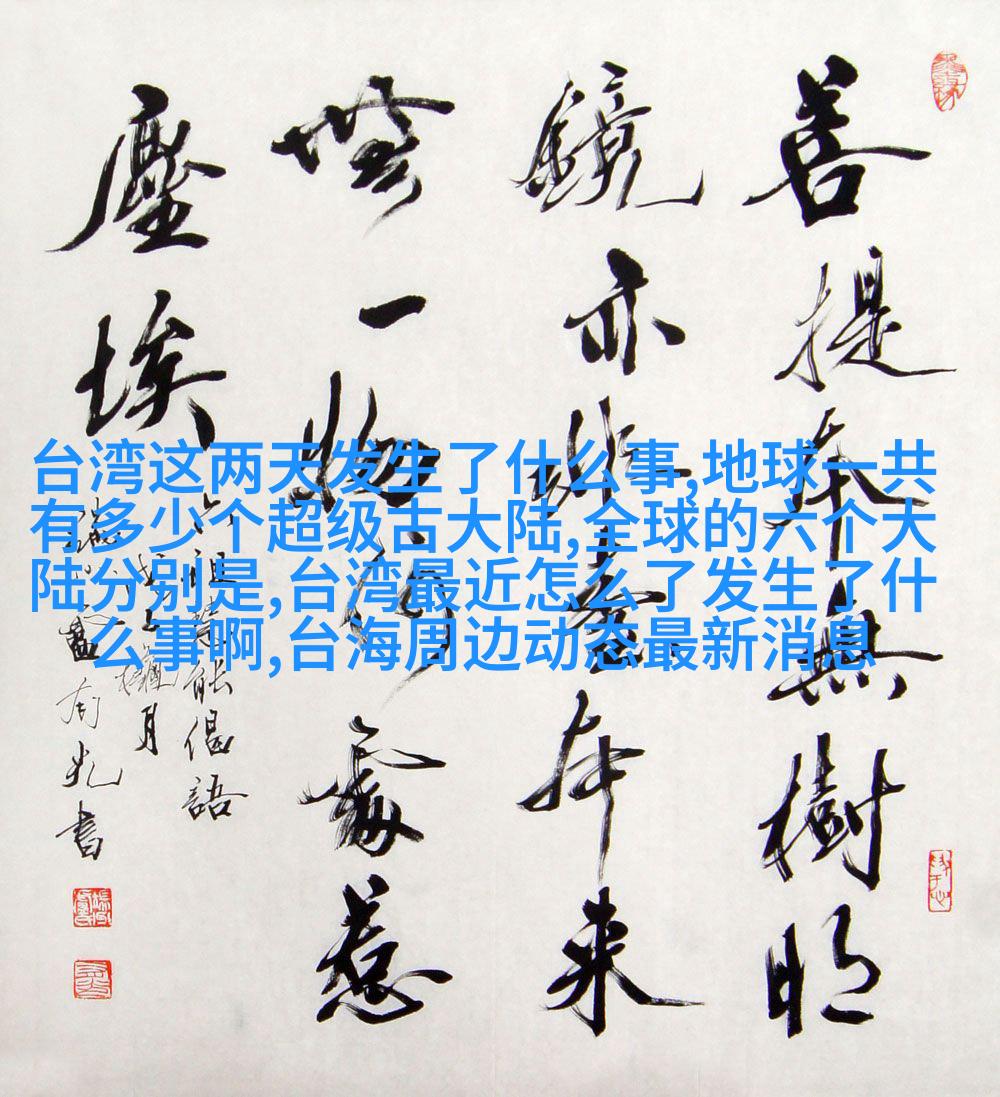 菩提本無樹明
鏡亦非臺本来
無一物何處惹
塵埃
六祖慧能偈語
台湾这两天发生了什么事,地球一共
有多少个超级古大陆,全球的六个大
陆分别是,台湾最近怎么了发生了什
么事啊,台海周边动态最新消息